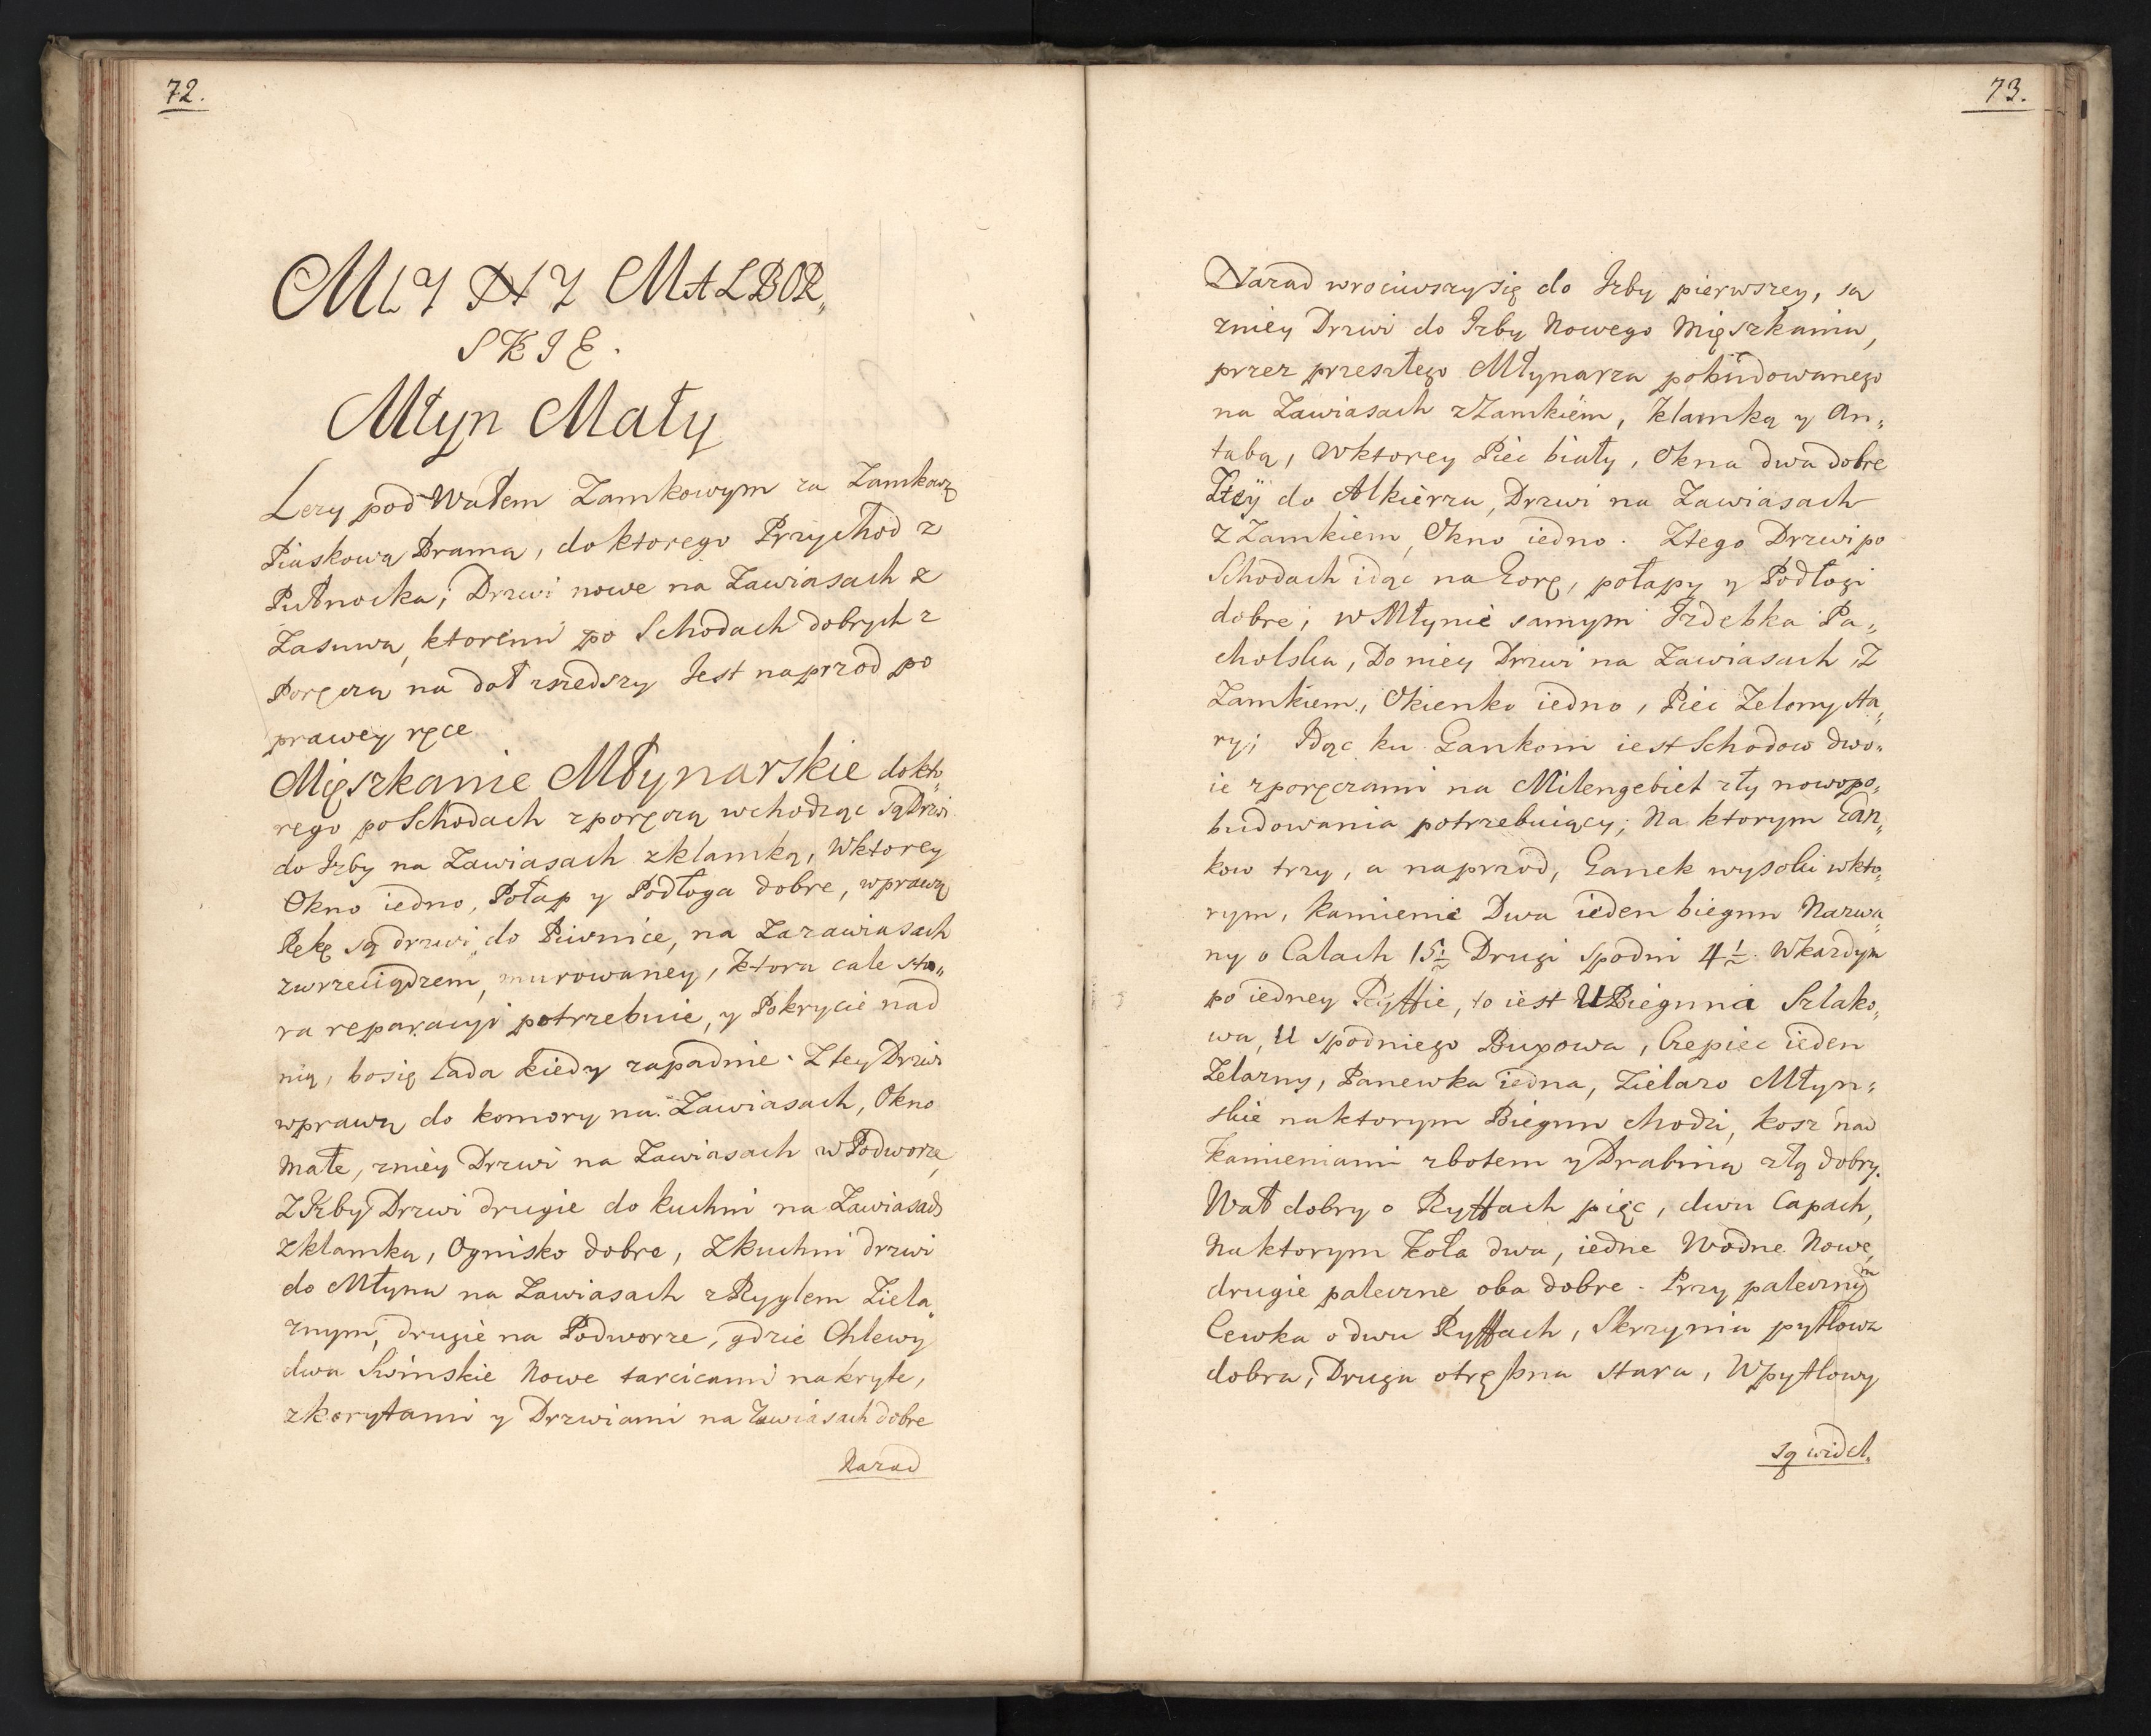 72.
MŁYNY MALBOR„
SKIE.
Młyn Mały
Leży pod Wałem Zamkowym za Zamkową
Piaskową Bramą, do ktorego Przychod z
Putnocka; Drzwi nowe na Zawiasach z
Zasuwą, ktoremi po Schodach dobrych z
Poręczą na doł zszedszy Jest naprzod po
prawey ręce
Mięszkanie Młynarskie do kto„
rego po Schodach z poręczą wchodząc są Drzwi
do Izby na Zawiasach z klamką, w ktorey
Okno iedno, Połap y Podłoga dobre, w prawą
Rękę są drzwi do Piwnice, na Zazawiasach
z wrzeciądzem, murowaney, ktora cale sta„
ra reparacyi potrzebuie, y Pokrycie nad
nią, bo się lada kiedy zapadnie. Z tey Drzwi
w prawą do komory na Zawiasach, Okno
Małe, z niey Drzwi na Zawiasach w Podworze,
Z Izby Drzwi drugie do kuchni na Zawiasach
z klamką, Ognisko dobre, Z kuchni drzwi
do Młyna na Zawiasach z Ryglem Ziela„
znym, drugie na Podworze, gdzie Chlewy
dwa Swinskie Nowe tarcicami nakryte,
z korytami y Drzwiami na Zawiasach dobre
Nazad
73.
Nazad wrociwszy się do Izby pierwszey, są
z niey Drzwi do Izby Nowego Mięszkania,
przez przeszłego Młynarza pobudowanego
na Zawiasach z Zamkiem, klamką y An„
tabą, w ktorey Piec biały, Okna dwa dobre
Z tey do Alkierza, Drzwi na Zawiasach
z Zamkiem, Okno iedno. Z tego Drzwi po
Schodach idąc na Gorę, połapy y Podłogi
dobre; w Młynie samym Izdebka Pa„
cholska, Do niey Drzwi na Zawiasach, Z
Zamkiem, Okienko iedno, Piec Zelony sta„
ry; Idąc ku Gankom iest Schodow dwo„
ie z poręczami na Milengebiet zły nowo po„
budowania potrzebuiący; Na ktorym Gan„
kow trzy, a naprzod, Ganek wysoki w kto„
rym, Kamienie Dwa ieden biegun Nazwa„
ny o Calach 15½ Drugi spodni 4½. W kazdym
po iedney Ryffie, to iest U Bieguna Szlako„
wa, U spodniego Buxowa, Crepiec ieden
Zelazny, Panewka iedna, Zielazo Młyn„
skie na ktorym Biegun chodzi, kosz nad
Kamieniami z botem y Drabiną złą dobry.
Wał dobry o Ryffach pięc, dwu Capach,
Na ktorym Koła dwa, iedne Wodne Nowe,
drugie paleczne oba dobre. Przy palecznym
Cewka o dwu Ryffach, Skrzynia pytlowa
dobra, Druga otrębna stara, W pytlowy
są widel„